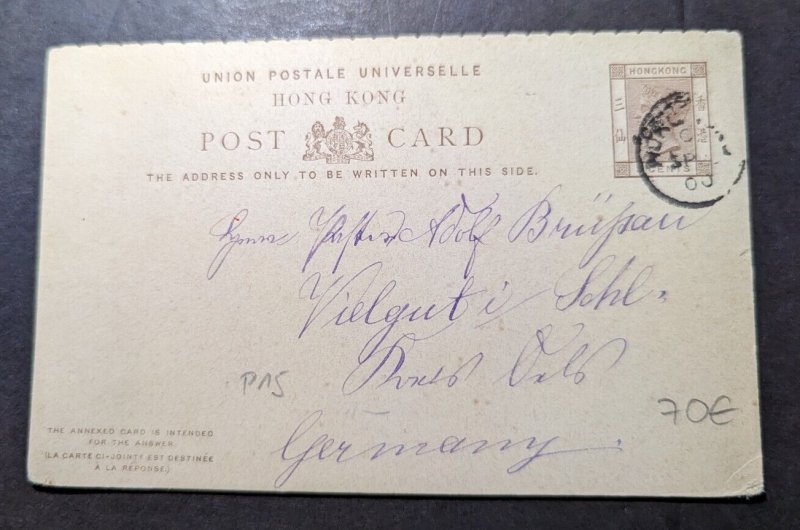 UNION POSTALE UNIVERSELLE
HONG KONG
POST CARD
THE ADDRESS ONLY TO BE WRITTEN ON THIS SIDE.
HONGKONG
三 香
仙 港
CENTS
Herrn Pastor Adolf Brüßau
Vielgut i Schl.
Kreis Oels
Germany.
P15
70€
THE ANNEXED CARD IS INTENDED
FOR THE ANSWER.
(LA CARTE CI-JOINTE EST DESTINÉE
À LA RÉPONSE.)